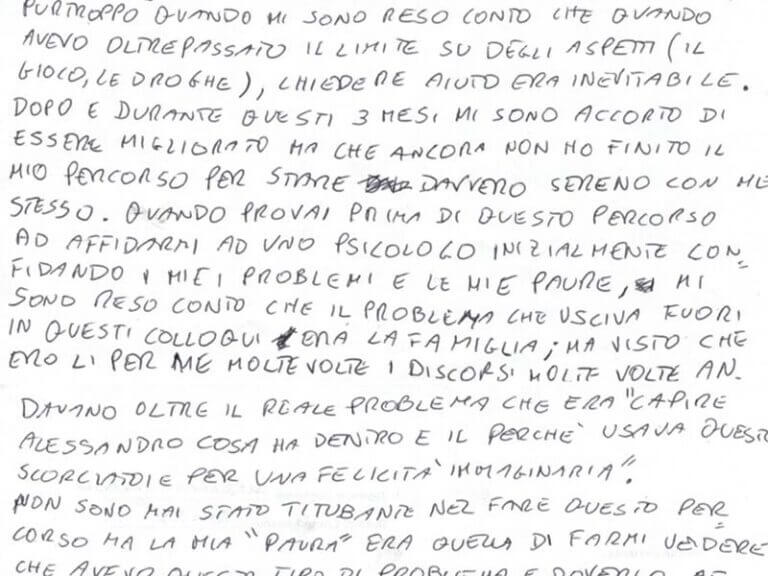 PURTROPPO QUANDO MI SONO RESO CONTO CHE QUANDO
AVEVO OLTREPASSATO IL LIMITE SU DEGLI ASPETTI (IL
GIOCO, LE DROGHE), CHIEDERE AIUTO ERA INEVITABILE.
DOPO E DURANTE QUESTI 3 MESI MI SONO ACCORTO DI
ESSERE MIGLIORATO MA CHE ANCORA NON HO FINITO IL
MIO PERCORSO PER STARE DAVVERO SERENO CON ME
STESSO. QUANDO PROVAI PRIMA DI QUESTO PERCORSO
AD AFFIDARMI AD UNO PSICOLOGO INIZIALMENTE CON=
FIDANDO I MIEI PROBLEMI E LE MIE PAURE, MI
SONO RESO CONTO CHE IL PROBLEMA CHE USCIVA FUORI
IN QUESTI COLLOQUI ERA LA FAMIGLIA; MA VISTO CHE
ERO LI PER ME MOLTE VOLTE I DISCORSI MOLTE VOLTE AN-
DAVANO OLTRE IL REALE PROBLEMA CHE ERA "CAPIRE
ALESSANDRO COSA HA DENTRO E IL PERCHE' USAVA QUESTE
SCORCIATOIE PER UNA FELICITA' IMMAGINARIA".
NON SONO MAI STATO TITUBANTE NEL FARE QUESTO PER=
CORSO MA LA MIA "PAURA" ERA QUELLA DI FARMI VEDERE
CHE AVEVO QUESTO TIPO DI PROBLEMA E DOVERLO